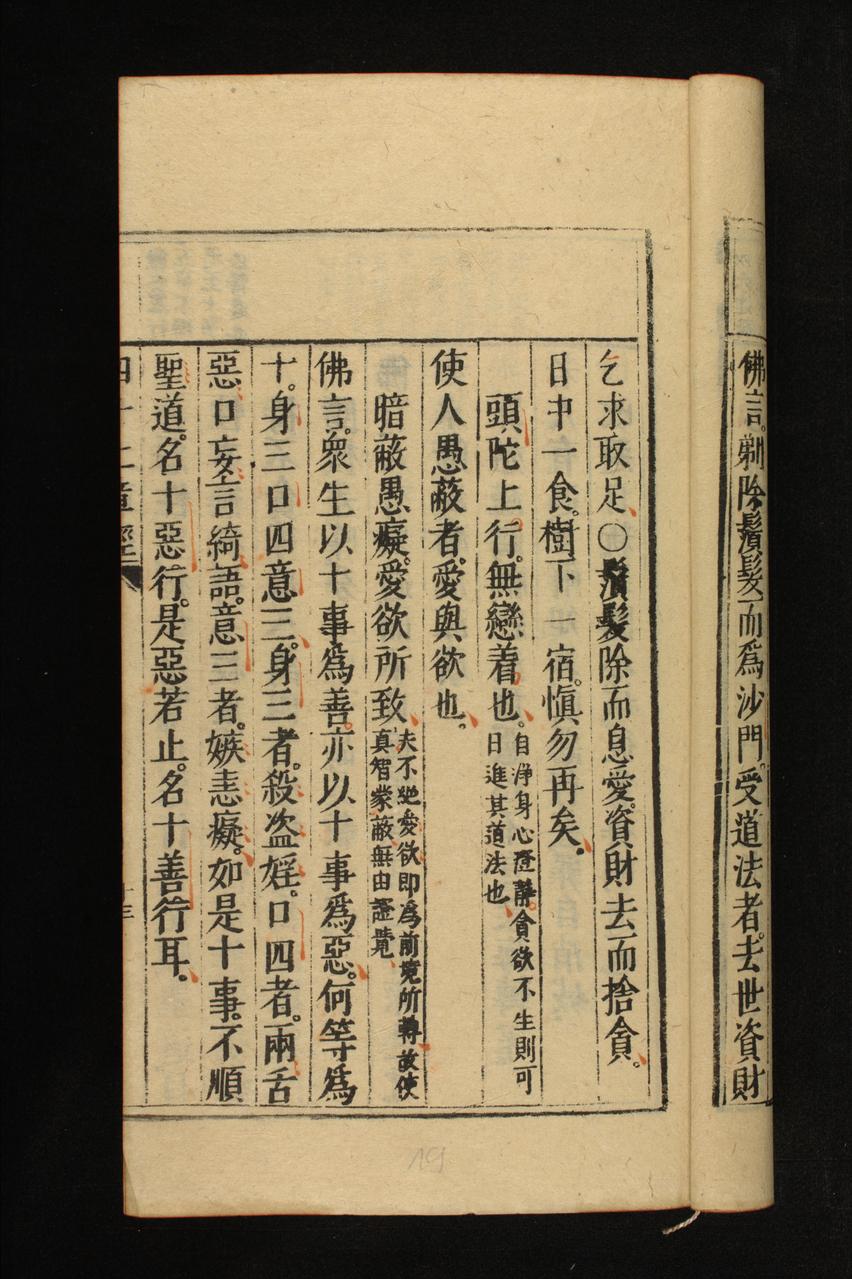 佛言。剃除鬚髮。而爲沙門。受道法者。去世資財
乞求取足、〇鬚髮除而息愛。資財去而捨貪。
日中一食。樹下一宿。愼勿再矣。
頭陀上行。無戀着也。自淨身心澄靜。貪欲不生則可
日進其道法也
使人愚蔽者。愛與欲也。
暗蔽愚癡。愛欲所致、夫不絕愛欲即爲前境所轉故使
真智蒙蔽無由證覺
佛言。衆生以十事爲善。亦以十事爲惡。何等爲
十。身三口四意三。身三者。殺盗婬。口四者。兩舌
惡口妄言綺語。意三者。嫉恚癡。如是十事。不順
聖道。名十惡行。是惡若止。名十善行耳。
四十二章經
十三
19